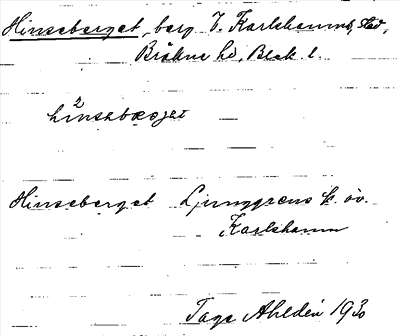 Hinseberget, berg V. Karlshamns stad,
Bräkne hd, Blek. l.
Hinseberget Ljunggrens k. öv.
Karlshamn
Tage Ahldén 1930